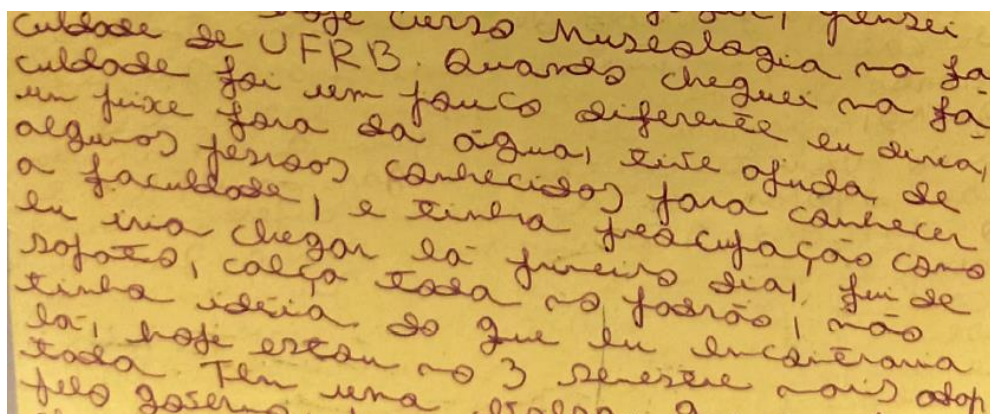 hoje curso Museologia na fa
culdade de UFRB. Quando cheguei na fa
culdade foi um pouco diferente eu diria,
um peixe fora da água, tive ajuda de
algumas pessoas conhecidas para conhecer
a faculdade, e tinha preocupação como
eu iria chegar lá primeiro dia, fui de
sapato, calça toda no padrão, não
tinha idéia do que eu encontraria
lá, hoje estou no 3 semestre mais adap
tada. Tem uma
pelo governo